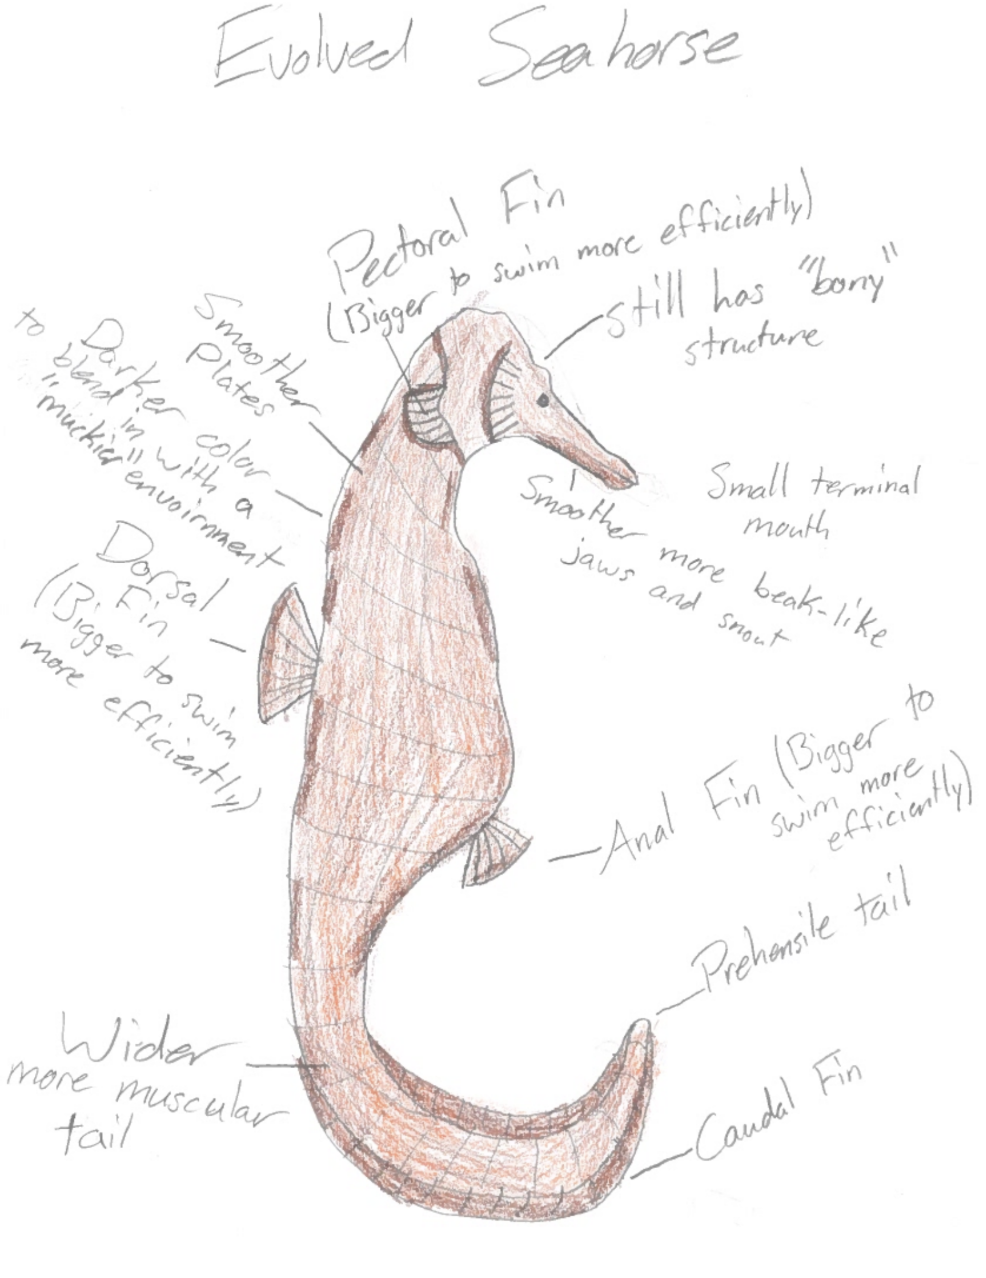 Evolved Seahorse
Pectoral Fin
(Bigger to swim more efficiently)
still has "bony"
structure
Smoother
Plates
Darker color
to blend in with a
"muckier" envoirnment
Dorsal
Fin
(Bigger to swim
more efficiently)
Small terminal
mouth
Smoother more beak-like
jaws and snout
Anal Fin (Bigger to
swim more
efficiently)
Prehensile tail
Wider
more muscular
tail
Caudal Fin